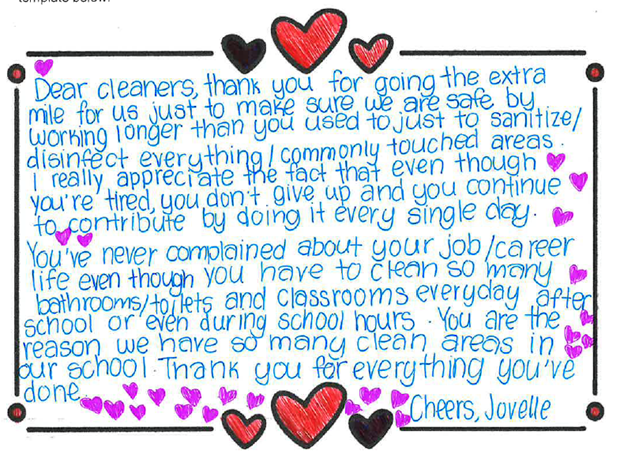 template below.
Dear cleaners, thank you for going the extra
mile for us just to make sure we are safe by
working longer than you used to just to sanitize/
disinfect everything/commonly touched areas.
I really appreciate the fact that even though
you're tired, you don't give up and you continue
to contribute by doing it every single day.
You've never complained about your job/career
life even though you have to clean so many
bathrooms/toilets and classrooms everyday after
school or even during school hours. You are the
reason we have so many clean areas in
our school. Thank you for everything you've
done.
Cheers, Jovelle